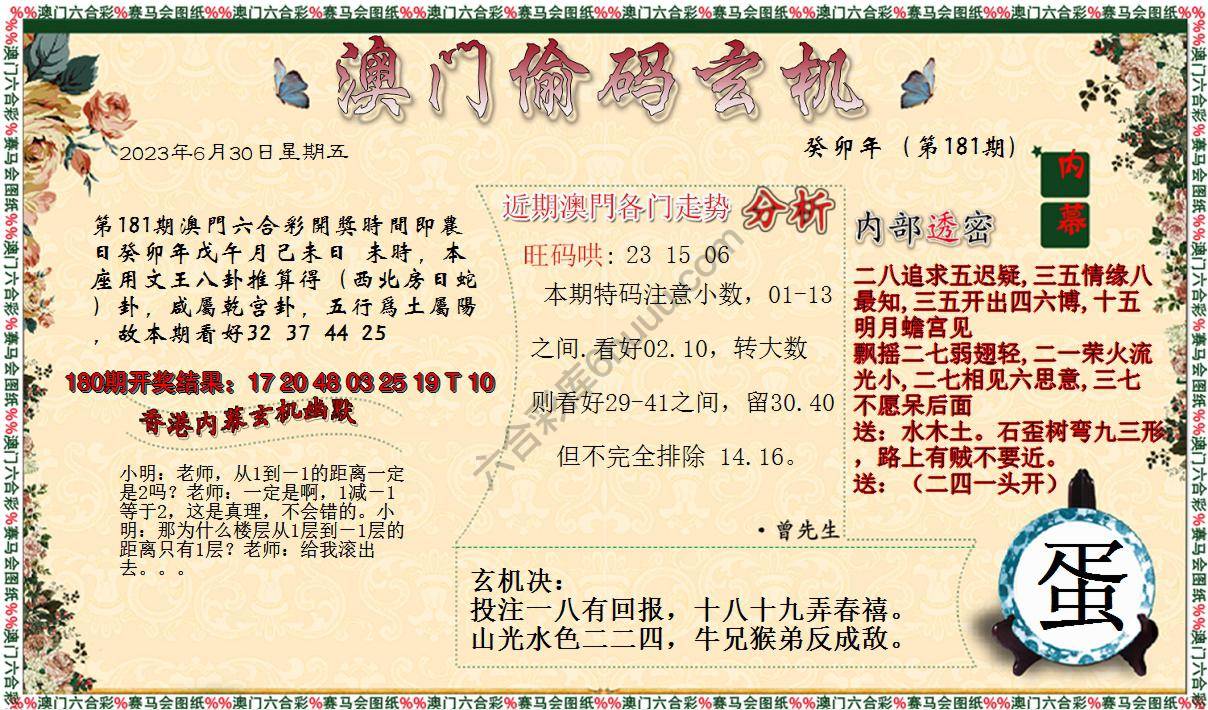 %%澳门六合彩%赛马会图纸%%澳门六合彩%赛马会图纸%%澳门六合彩%赛马会图纸%%澳门六合彩%赛马会图纸%%澳门六合彩%赛马会图纸%%澳门六合彩%赛马会图纸%%
澳门偷码玄机
2023年6月30日星期五
癸卯年（第181期）
内幕
第181期澳門六合彩開獎時間即農
日癸卯年戊午月己未日 未時，本
座用文王八卦推算得（西北房日蛇
）卦，咸屬乾宫卦，五行爲土屬陽
，故本期看好32 37 44 25
180期开奖结果：17 20 48 03 25 19 T 10
香港内幕玄机幽默
小明：老师，从1到－1的距离一定
是2吗？老师：一定是啊，1减－1
等于2，这是真理，不会错的。小
明：那为什么楼层从1层到－1层的
距离只有1层？老师：给我滚出
去。。。
近期澳門各门走势 分析
旺码哄: 23 15 06
本期特码注意小数，01-13
之间.看好02.10，转大数
则看好29-41之间，留30.40
但不完全排除 14.16。
·曾先生
内部透密
二八追求五迟疑,三五情缘八
最知,三五开出四六博,十五
明月蟾宫见
飘摇二七弱翅轻,二一荣火流
光小,二七相见六思意,三七
不愿呆后面
送：水木土。石歪树弯九三形
，路上有贼不要近。
送：（二四一头开）
玄机决：
投注一八有回报，十八十九弄春禧。
山光水色二二四，牛兄猴弟反成敌。
蛋
%%澳门六合彩%赛马会图纸%%澳门六合彩%赛马会图纸%%澳门六合彩%赛马会图纸%%澳门六合彩%赛马会图纸%%澳门六合彩%赛马会图纸%%澳门六合彩%赛马会图纸%%